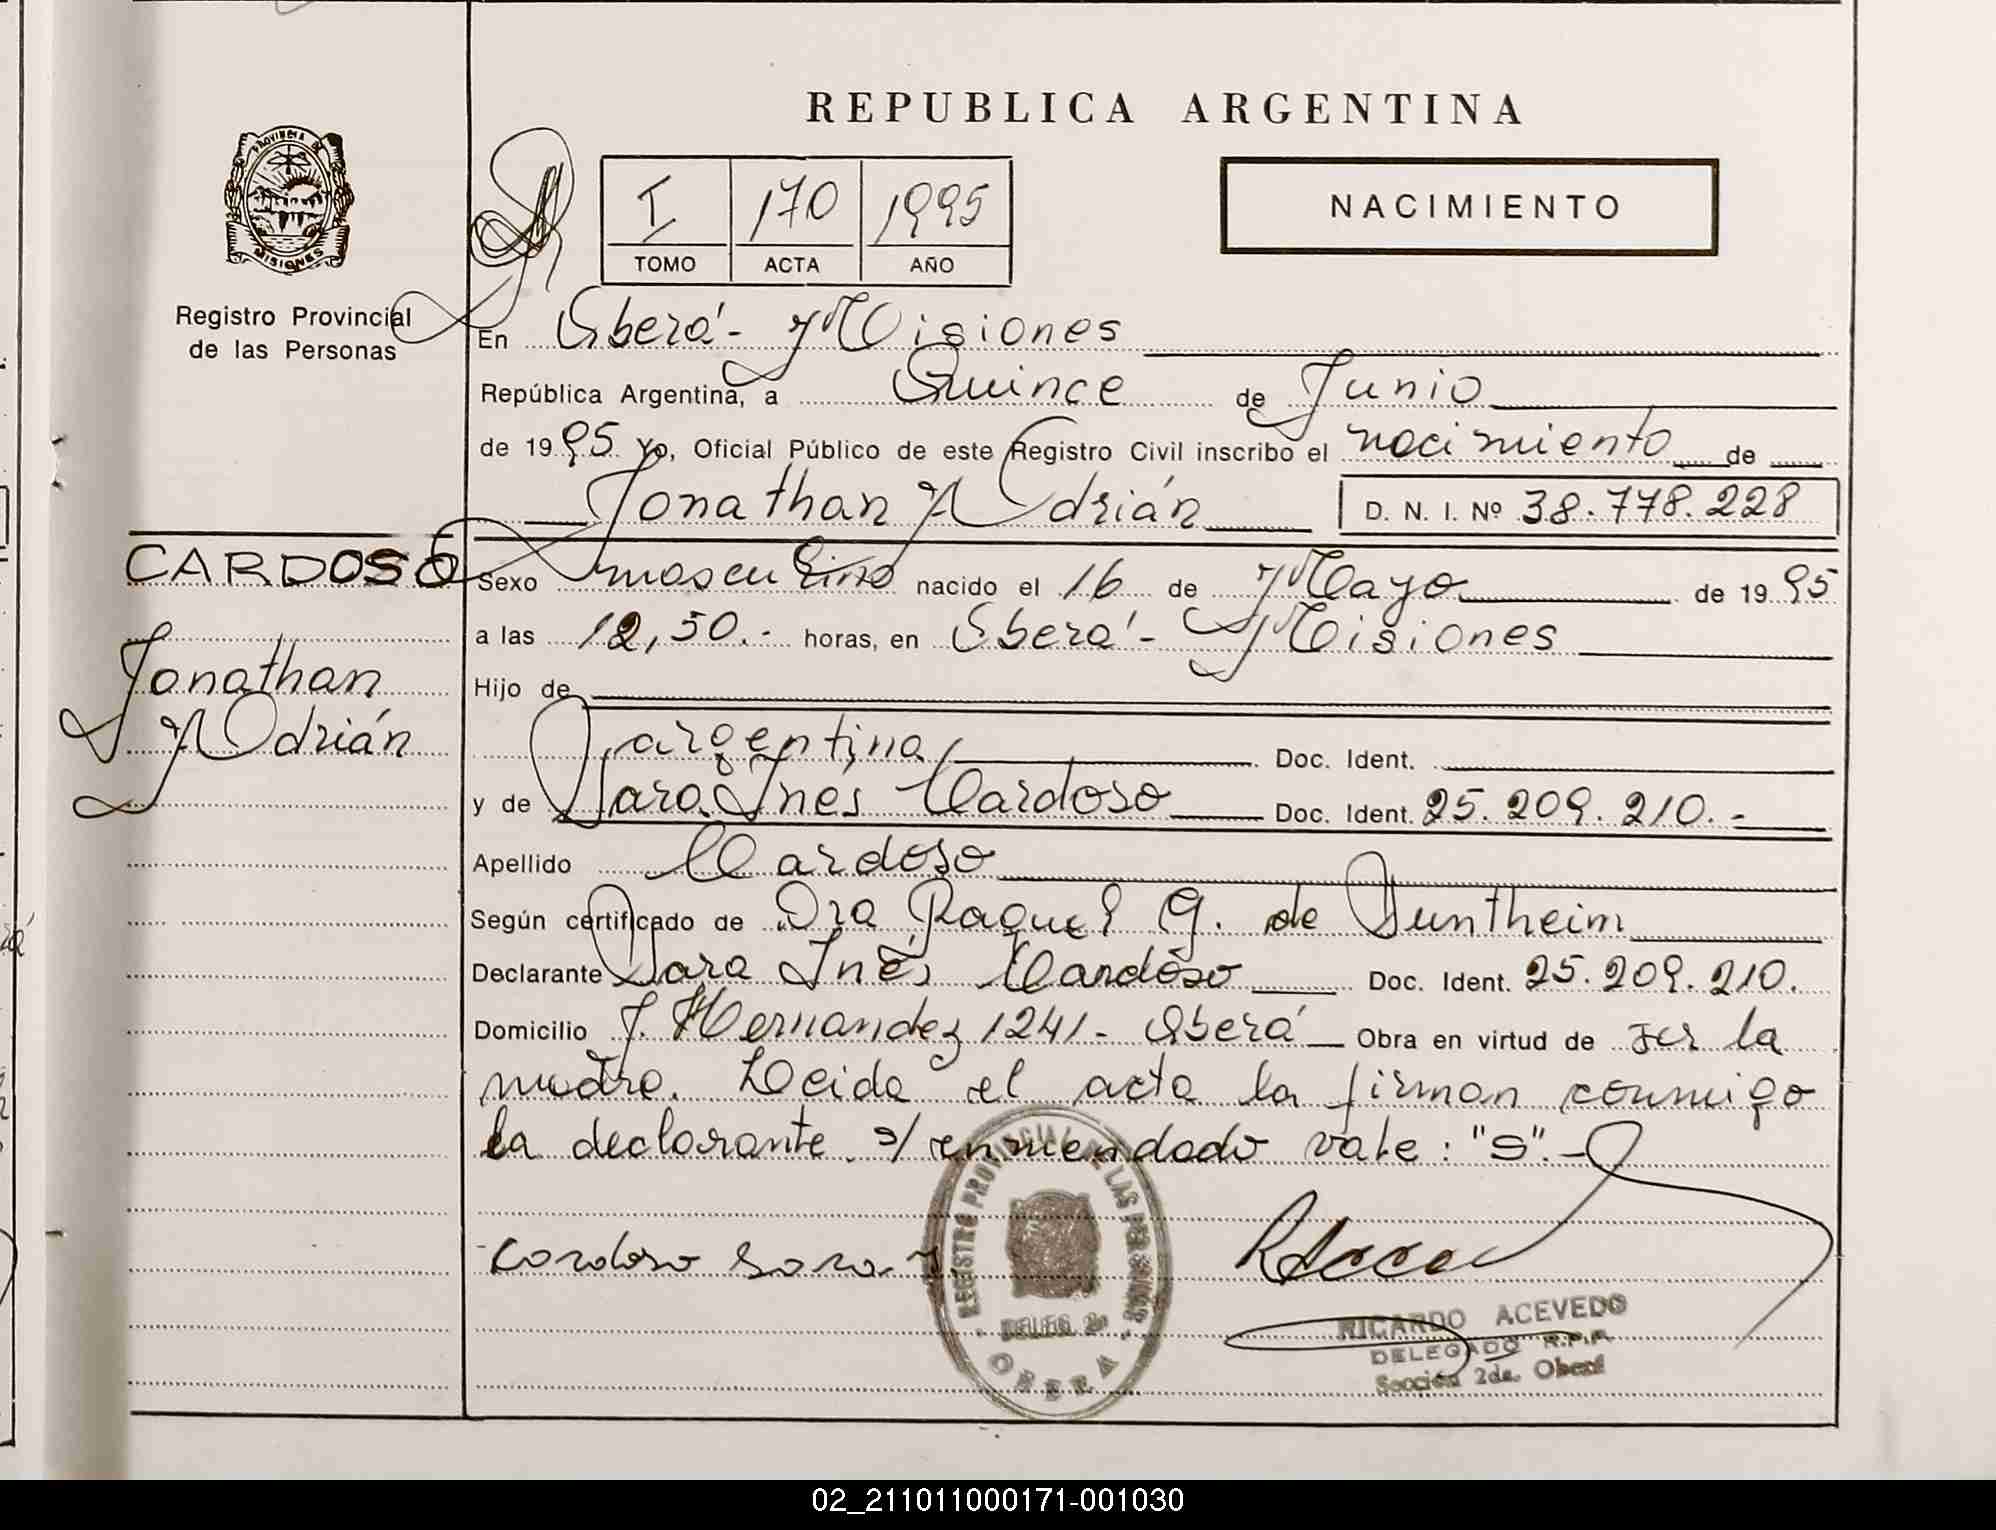 REPUBLICA ARGENTINA
PROVINCIA DE
MISIONES
Registro Provincial
de las Personas
I 170 1995
TOMO ACTA AÑO
NACIMIENTO
En Oberá - Misiones
República Argentina, a Quince de Junio
de 1995 Yo, Oficial Público de este Registro Civil inscribo el nacimiento de
Jonathan Adrián D. N. I. Nº 38.778.228
CARDOSO
Jonathan
Adrián
Sexo masculino nacido el 16 de Mayo de 1995
a las 12,50.- horas, en Oberá - Misiones
Hijo de
argentina Doc. Ident.
y de Sara Inés Cardoso Doc. Ident. 25.209.210.-
Apellido Cardoso
Según certificado de Dra Raquel G. de Duntheim
Declarante Sara Inés Cardoso Doc. Ident. 25.209.210.
Domicilio J. Hernandez 1241 - Oberá Obra en virtud de ser la
madre. Leida el acta la firman conmigo
la declarante. s/ enmendado vale: "S".-
Cardoso Sara I.
REGISTRO PROVINCIAL DE LAS PERSONAS
DELEG. 2da
OBERA
RICARDO ACEVEDO
DELEGADO R.P.P.
Sección 2da. Oberá
02_211011000171-001030